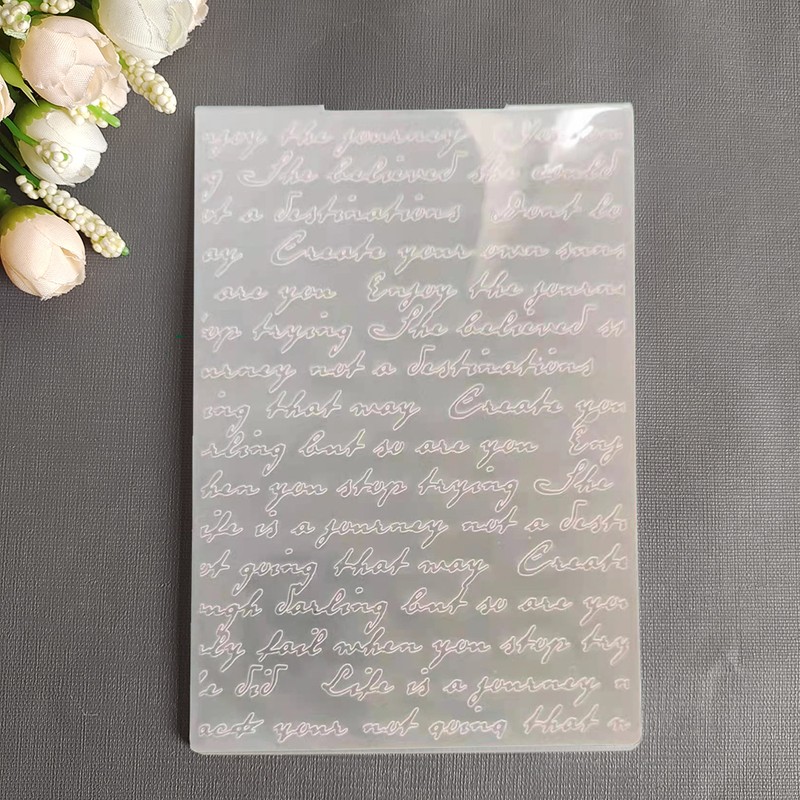 njoy the journey You on
g She believed she could
ot a destinations Dont lo
ay Create your own suns
are you Enjoy the journe
op trying She believed s
urney not a destinations
ing that may Create you
rling but so are you Enj
hen you stop trying She
ife is a journey not a desti
ot going that may Create
ugh darling but so are you
ly fail when you stop try
e did Life is a journey n
act your not going that